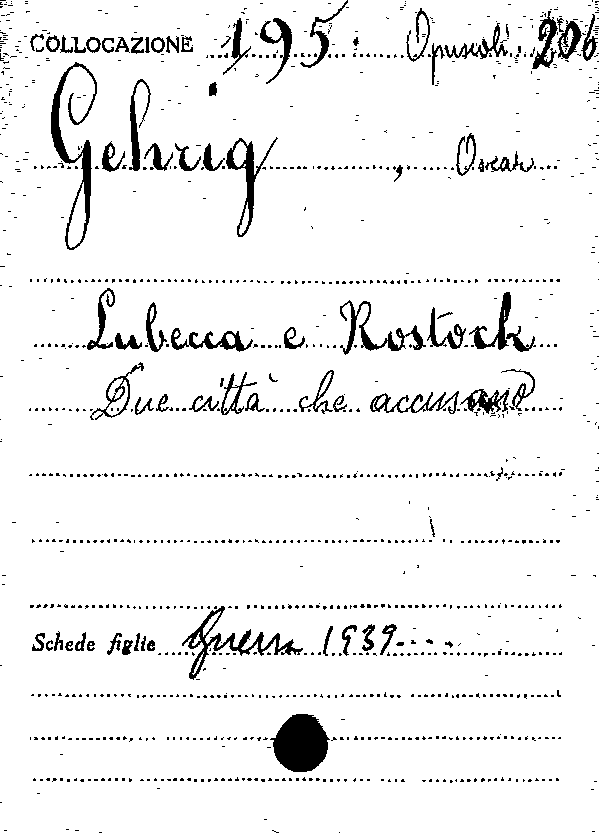 COLLOCAZIONE 195. Opuscoli. 206
Gehrig, Oscar
Lubecca e Rostock
Due città che accusano
Schede figlie Guerra 1939----